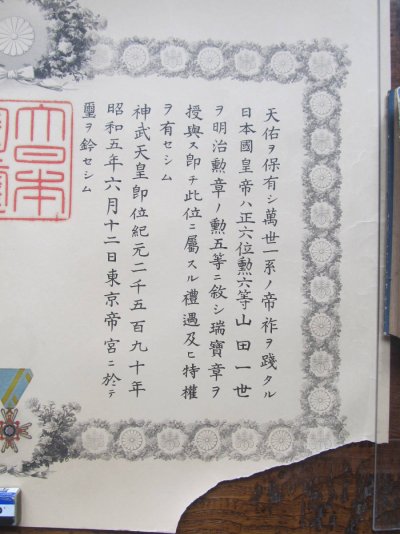 天佑ヲ保有シ萬世一系ノ帝祚ヲ踐タル
日本國皇帝ハ正六位勲六等山田一世
ヲ明治勲章ノ勲五等ニ敘シ瑞寶章ヲ
授與ス即チ此位ニ屬スル禮遇及ヒ特權
ヲ有セシム
神武天皇即位紀元二千五百九十年
昭和五年六月十二日東京帝宮ニ於テ
璽ヲ鈐セシム
大日本